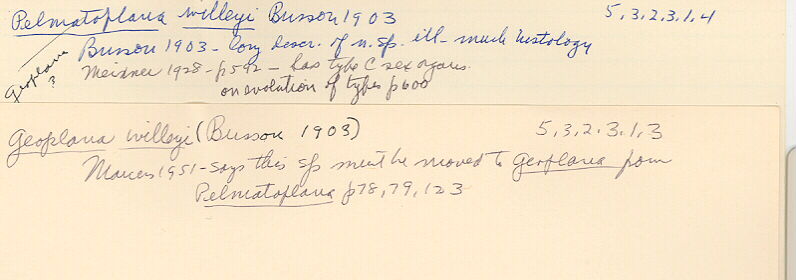 Pelmatoplana willeyi Busson 1903 5,3,2,3,1,4
Busson 1903 - long descr. of n. sp. ill - much histology
Geoplana ?
Meixner 1928 - p592 - has type C sex organs.
on evolution of types p600
Geoplana willeyi (Busson 1903) 5,3,2,3,1,3
Marcus 1951 - says this sp must be moved to Geoplana from
Pelmatoplana p78, 79, 123